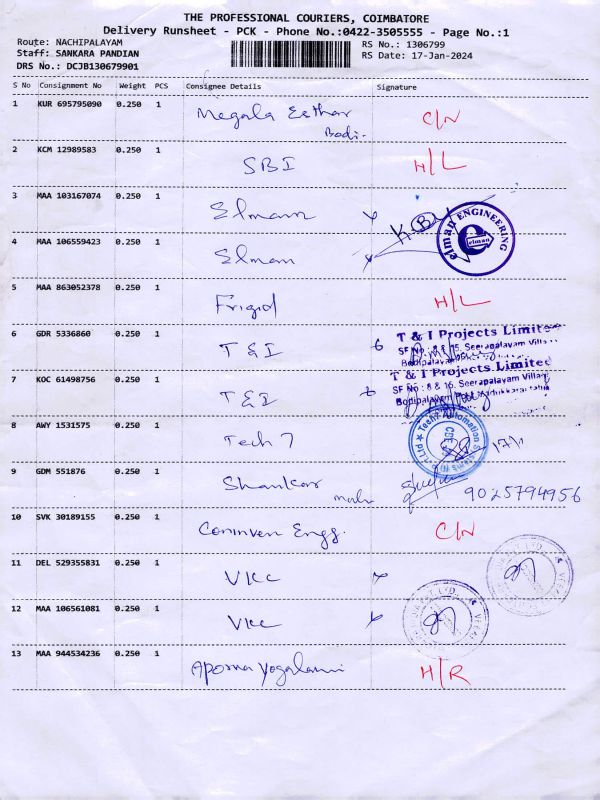 THE PROFESSIONAL COURIERS, COIMBATORE
Delivery Runsheet - PCK - Phone No.:0422-3505555 - Page No.:1
Route: NACHIPALAYAM
Staff: SANKARA PANDIAN
DRS No.: DCJB130679901
RS No.: 1306799
RS Date: 17-Jan-2024
S No Consignment No Weight PCS Consignee Details Signature
1 KUR 695795090 0.250 1 Megala Esthar C/N
Bodi.
2 KCM 12989583 0.250 1 SBI H/L
3 MAA 103167074 0.250 1 Elmam
elman ENGINEERING
e
elman
4 MAA 106559423 0.250 1 Elmam
5 MAA 863052378 0.250 1 Frigid H/L
6 GDR 5336860 0.250 1 T & I
T & I Projects Limited
SF No : 8 & 15, Seerapalayam Village
Bodipalayam
7 KOC 61498756 0.250 1 T & I
T & I Projects Limited
SF No : 8 & 16, Seerapalayam Village
Bodipalayam
8 AWY 1531575 0.250 1 Tech 7 17/1
9 GDM 551876 0.250 1 Shankar 9025794956
10 SVK 30189155 0.250 1 Engg. C/N
11 DEL 529355831 0.250 1 VKC
12 MAA 106561081 0.250 1 VKC
13 MAA 944534236 0.250 1 H/R